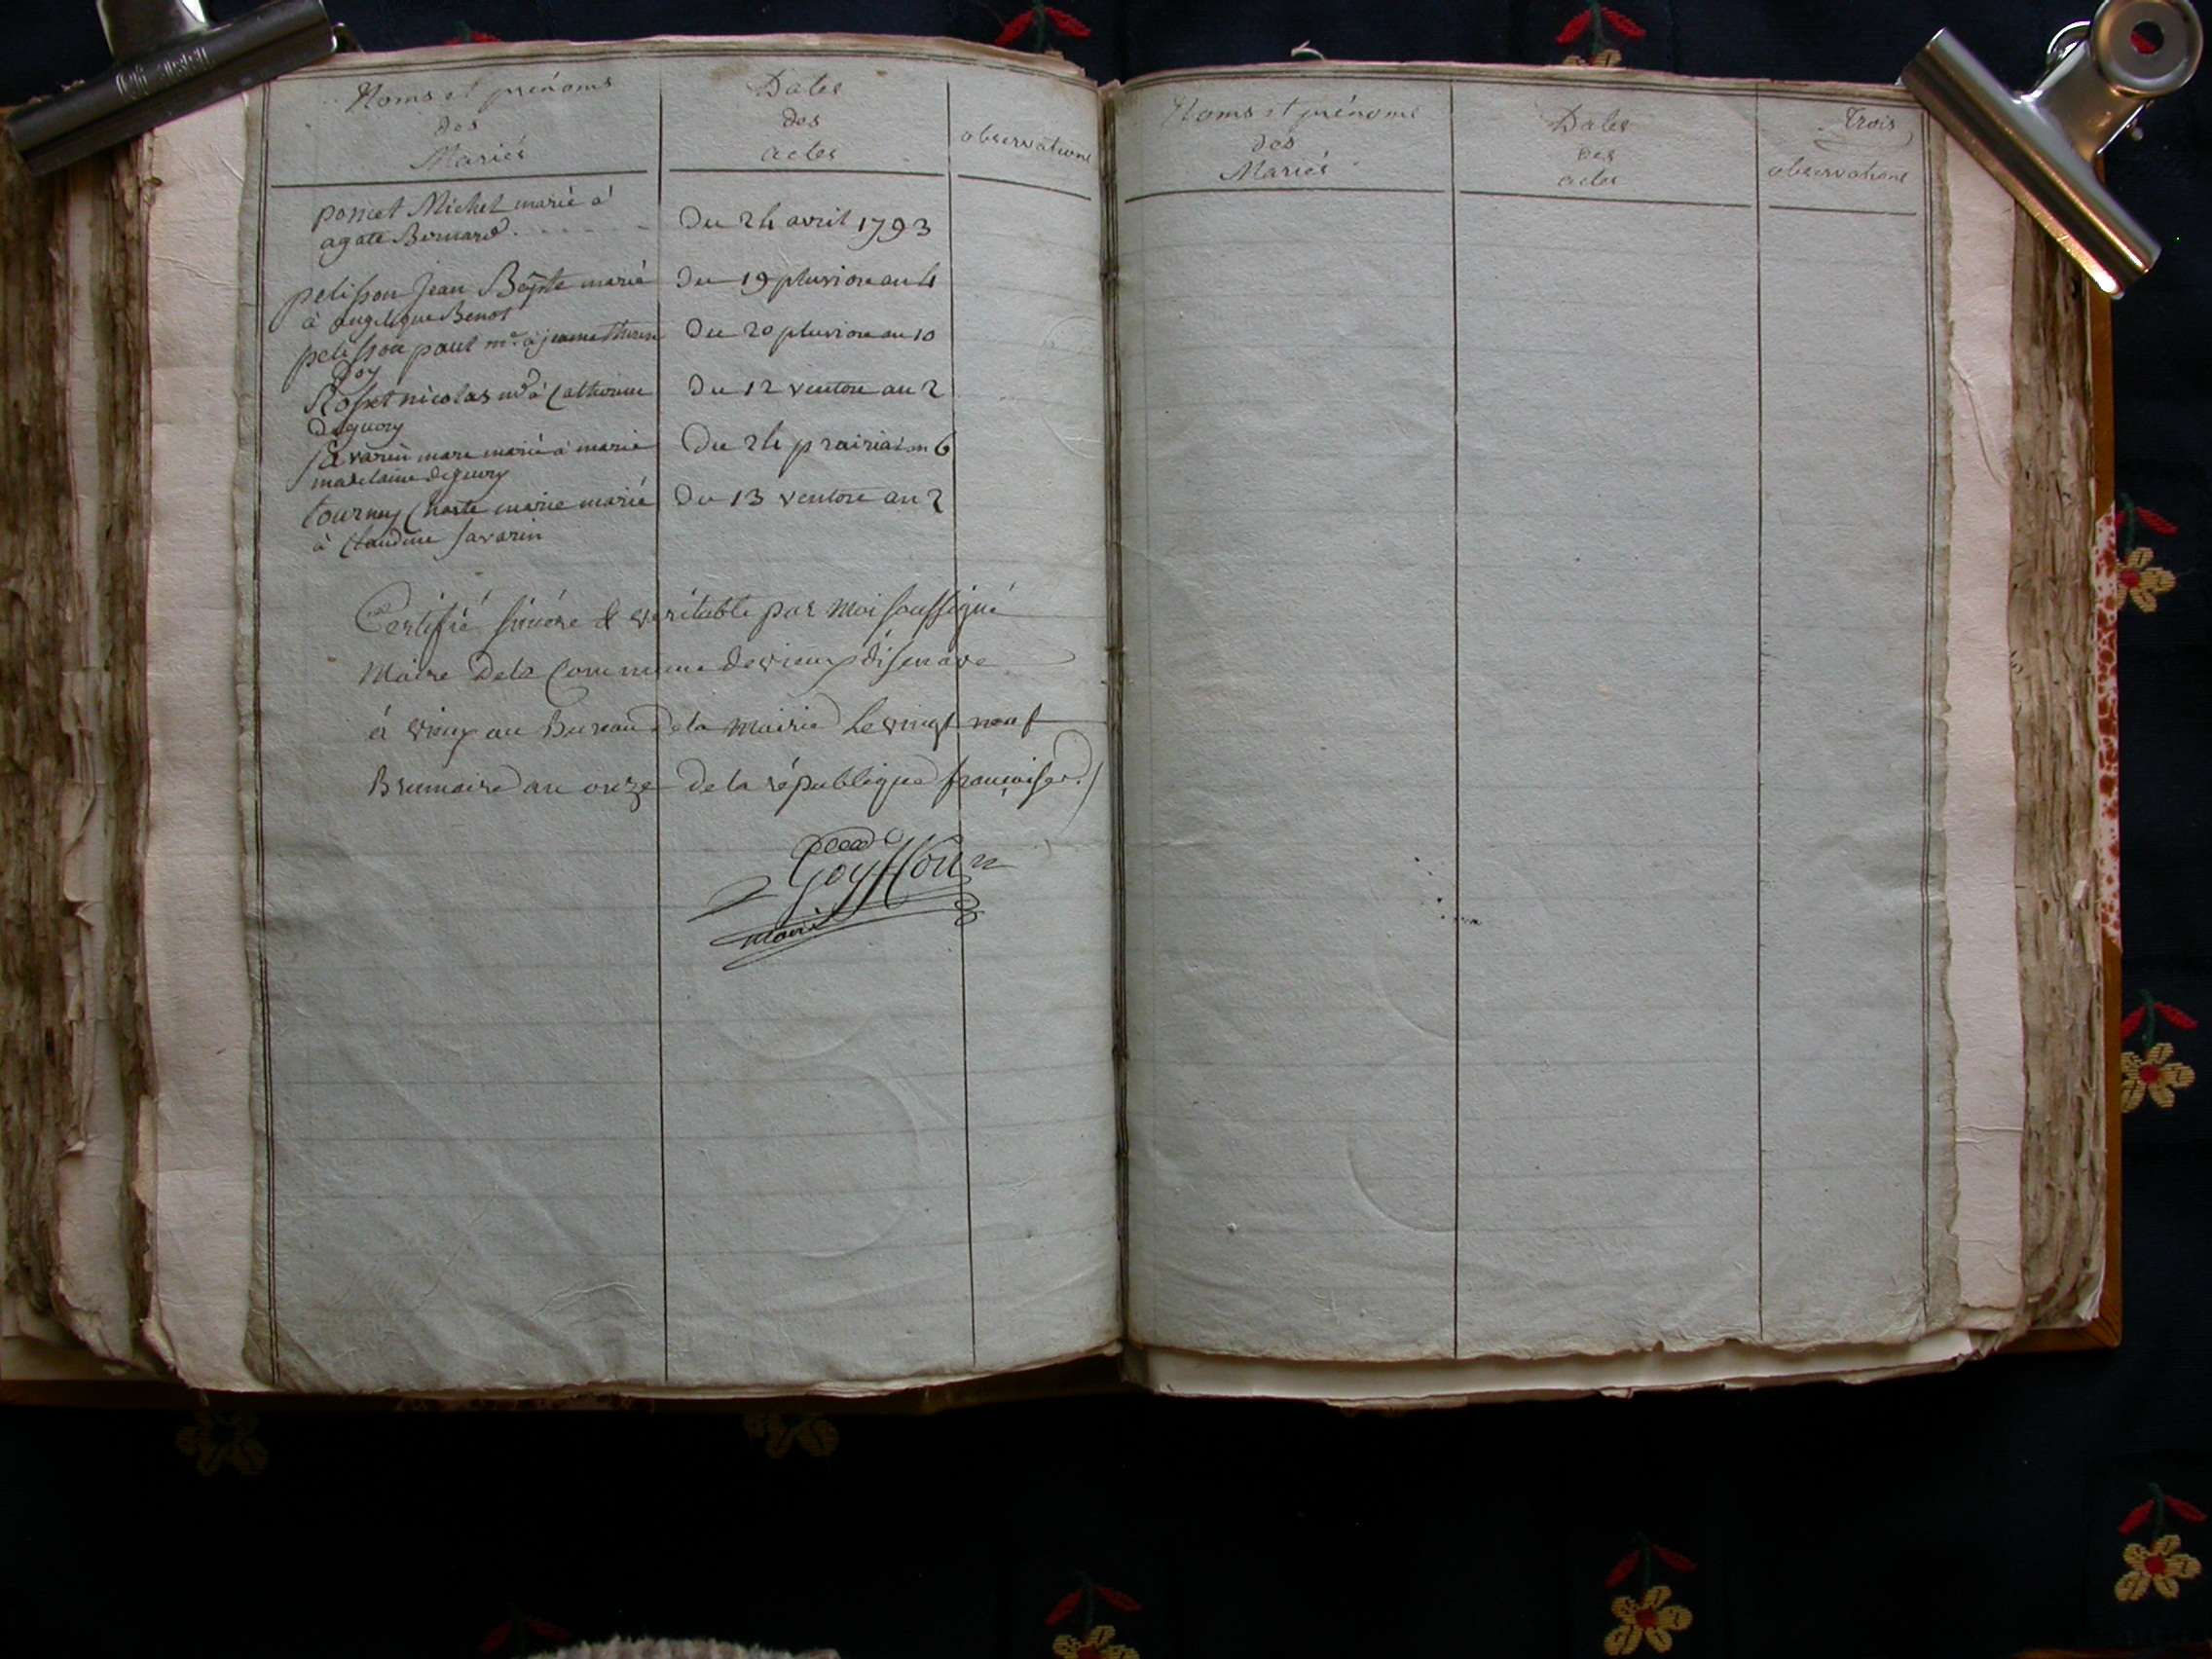 Noms et prénoms
des
Mariés
Dates
des
actes
observations
poncet Michel marié à
agate Bernard
Du 24 avril 1793
pelisson Jean Bapte marié
à angelique Benot
Du 19 pluviose an 4
pelisson paul mé à jeanne
Goy
Du 20 pluviose an 10
Rosset nicolas md à Catherine
deguory
Du 12 ventose an 2
Savarin marc marié à marie
madelaine deguory
Du 24 prairial an 6
tourney marie marié
à Claudine Savarin
Du 13 ventose an 2
Certifié sincére & veritable par Moi soussigné
Maire dela Commune devieux
à vieux au Bureau dela Mairie Le vingt neuf
Brumaire an onze de la république françaiser./
Goyffon
maire
Noms et prénoms
des
Mariés
Dates
des
actes
Trois
observations